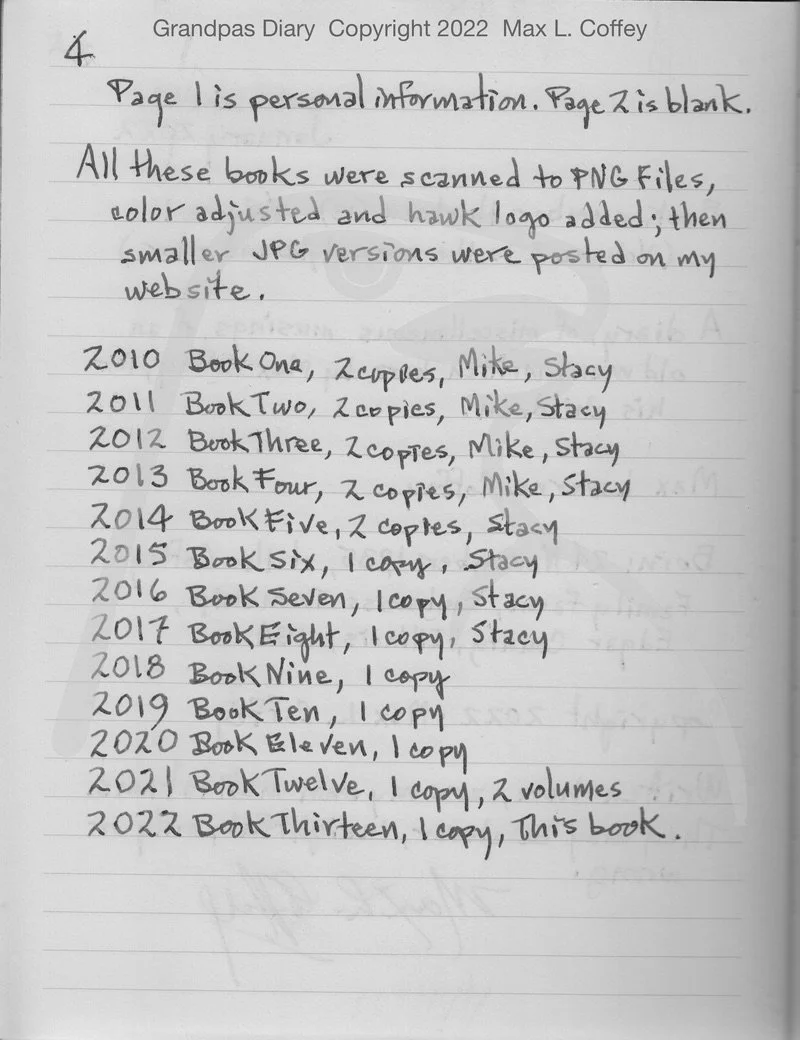 Grandpas Diary Copyright 2022 Max L. Coffey
4
Page 1 is personal information. Page 2 is blank.
All these books were scanned to PNG Files,
color adjusted and hawk logo added; then
smaller JPG versions were posted on my
website.
2010 Book One, 2 copies, Mike, Stacy
2011 Book Two, 2 copies, Mike, Stacy
2012 Book Three, 2 copies, Mike, Stacy
2013 Book Four, 2 copies, Mike, Stacy
2014 Book Five, 2 copies, Stacy
2015 Book Six, 1 copy, Stacy
2016 Book Seven, 1 copy, Stacy
2017 Book Eight, 1 copy, Stacy
2018 Book Nine, 1 copy
2019 Book Ten, 1 copy
2020 Book Eleven, 1 copy
2021 Book Twelve, 1 copy, 2 volumes
2022 Book Thirteen, 1 copy, This book.